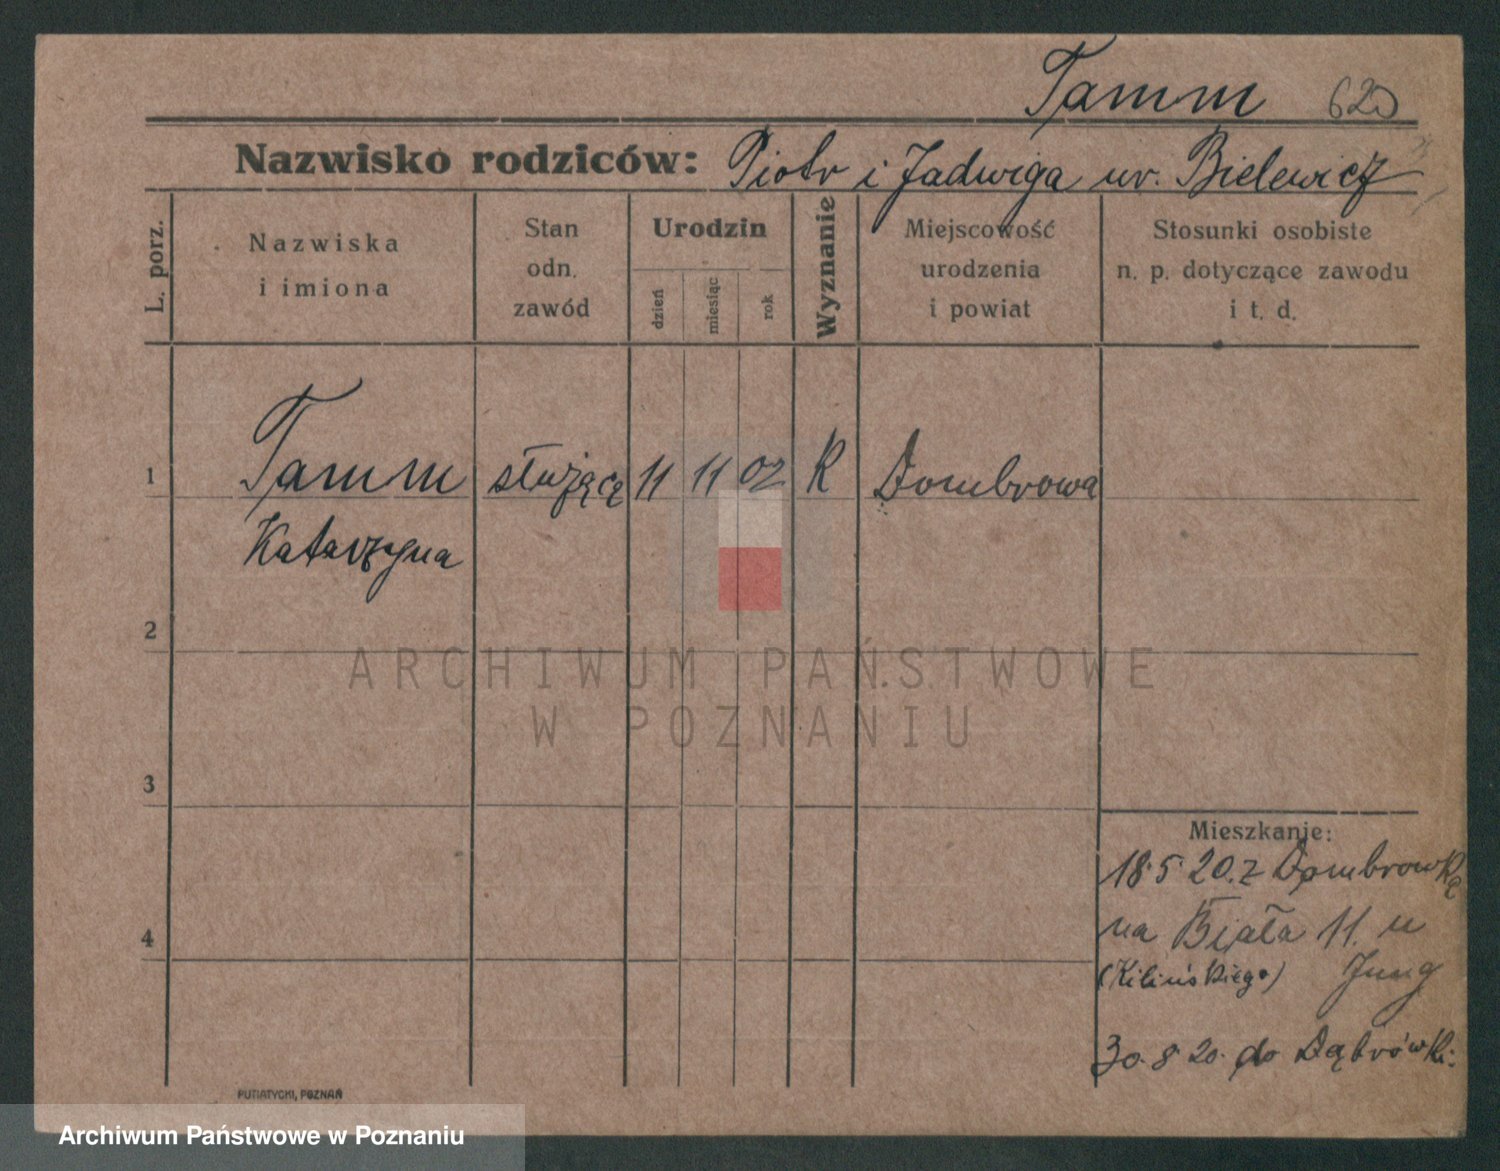 Tamm 620
Nazwisko rodziców: Piotr i Jadwiga ur. Bielewicz
L. porz.
Nazwiska
i imiona
Stan
odn.
zawód
Urodzin
dzień
miesiąc
rok
Wyznanie
Miejscowość
urodzenia
i powiat
Stosunki osobiste
n. p. dotyczące zawodu
i t. d.
1 Tamm służącą 11 11 02 K Dombrowa
Katarzyna
2
3
4
Mieszkanie:
18.5.20. z Dombrowką
na Biała 11. u
(Kilińskiego) Jung
30.8.20. do Dąbrówki.
PUTIATYCKI, POZNAŃ
ARCHIWUM PAŃSTWOWE
W POZNANIU
Archiwum Państwowe w Poznaniu